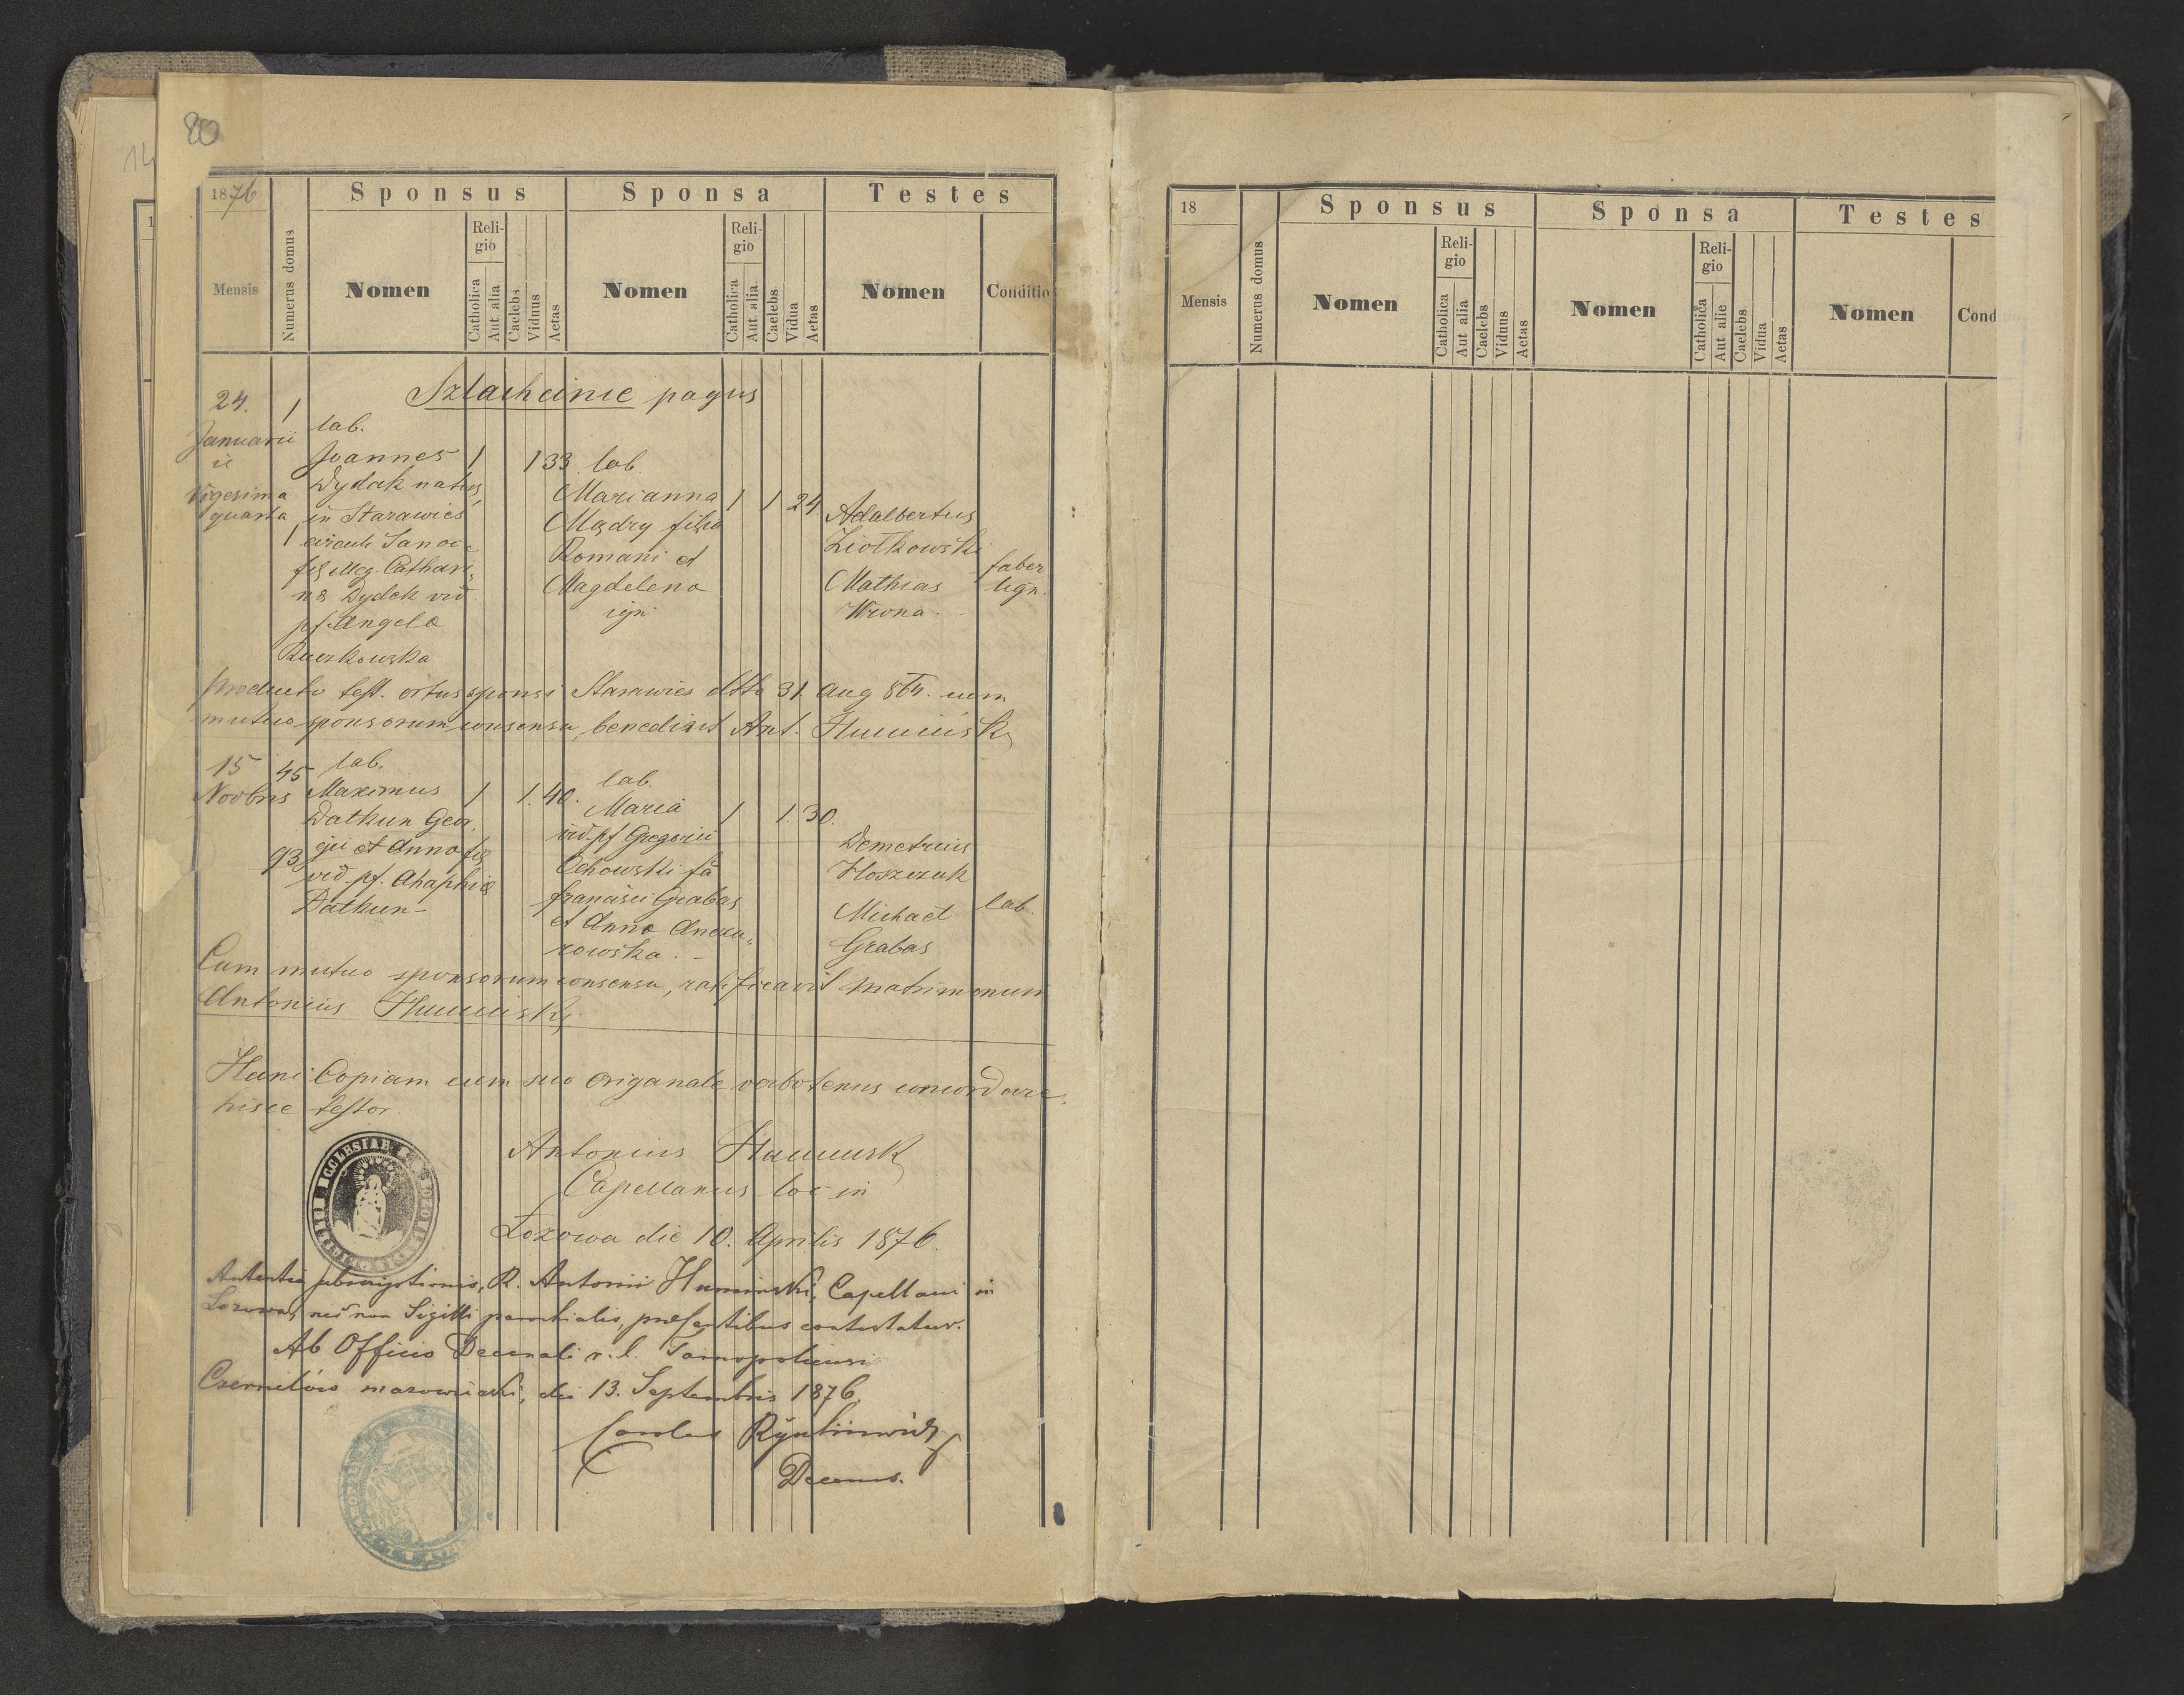 20
14
1876
Sponsus
Sponsa
Testes
Mensis
Numerus domus
Nomen
Religio
Catholica
Aut alia
Caelebs
Viduus
Aetas
Nomen
Religio
Catholica
Aut alia
Caelebs
Vidua
Aetas
Nomen
Conditio
Szlachcinie pagus
24.
Januarii
Vigesima
quarta
1
1
lab.
Joannes
Dydak natus
in Starawieś
circuli Sanoc
Cathari
na Dydek vid
pf. Angela
Ruczkowska
1 1 33.
lab.
Marianna
Mądry filia
Romani et
Magdelena
1 1 24.
Adalbertus
Ziołkowski
Mathias
Wrona
faber
lign.
Producto test. ortus sponsi Starawieś dtto 31. Aug 864. cum
mutuo sponsorum consensu, benedixit Ant. Humiński
15
Novbris
45
93
lab.
Maximus
Dathun Geor
gii et Anna fil
vid. pf. Ahaphia
Dathun
1 1. 40.
lab.
Maria
vid. pf Gregorii
Ochowski fa
francisci Grabas
et Anna
rowska.
1 1. 30.
Demetrius
Hoszczuk
Michael
Grabas
lab.
Cum mutuo sponsorum consensu, ratificavit matrimonium
Antonius Humiński
Hanc Copiam cum suo origanale verbotenus concordare
hisce testor.
Antonius Humiński
Capellanus loc in
Łozowa die 10. Aprilis 1876.
R. Antonii Huminski, Capellani in
Lozowa, nec non Sigilli parochialis, præsentibus contestatur.
Ab Officio Decanali r. l. Tarnopoliensi
Czerniłów mazowiecki, die 13. Septembris 1876.
Carolus
Decanus.
18
Sponsus
Sponsa
Testes
Mensis
Numerus domus
Nomen
Religio
Catholica
Aut alia
Caelebs
Viduus
Aetas
Nomen
Religio
Catholica
Aut alie
Caelebs
Vidua
Aetas
Nomen
Cond